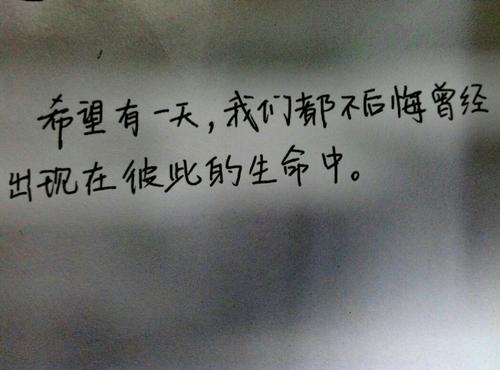 希望有一天，我们都不后悔曾经
出现在彼此的生命中。